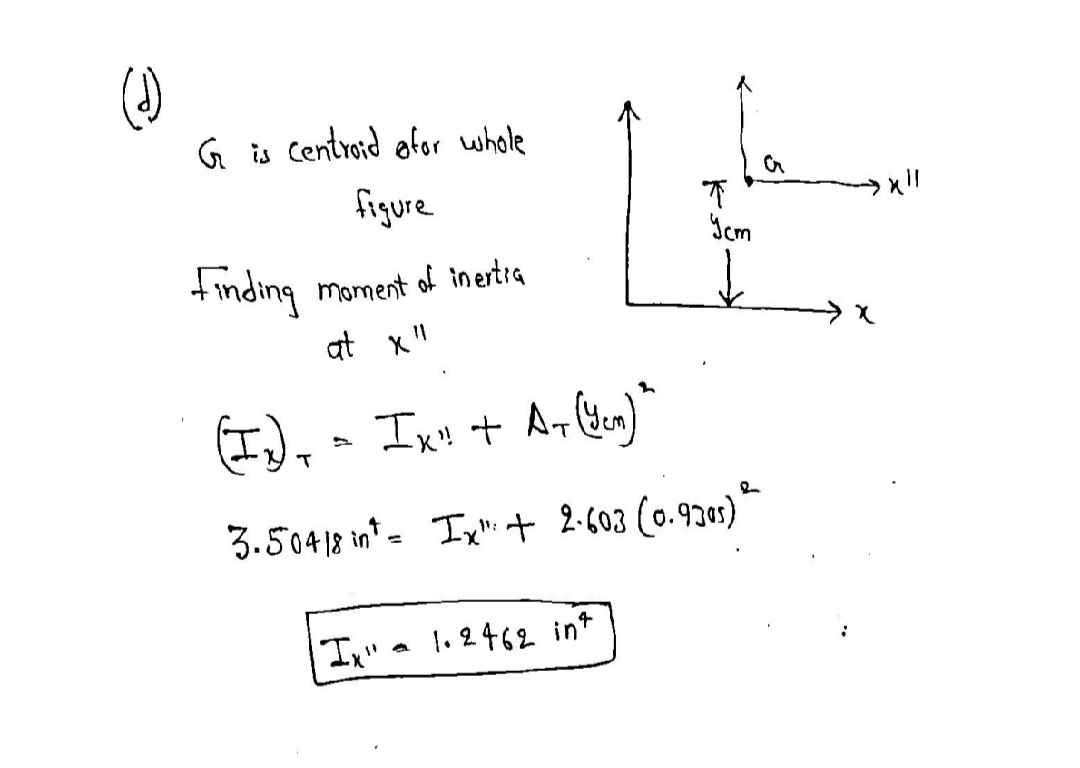 (d)
G is centroid ofor whole
figure
Finding moment of inertia
at x''
G
x''
ycm
x
(Ix)T = Ix'' + AT(ycm)²
3.50418 in⁴ = Ix'' + 2.603 (0.9305)²
Ix'' = 1.2462 in⁴